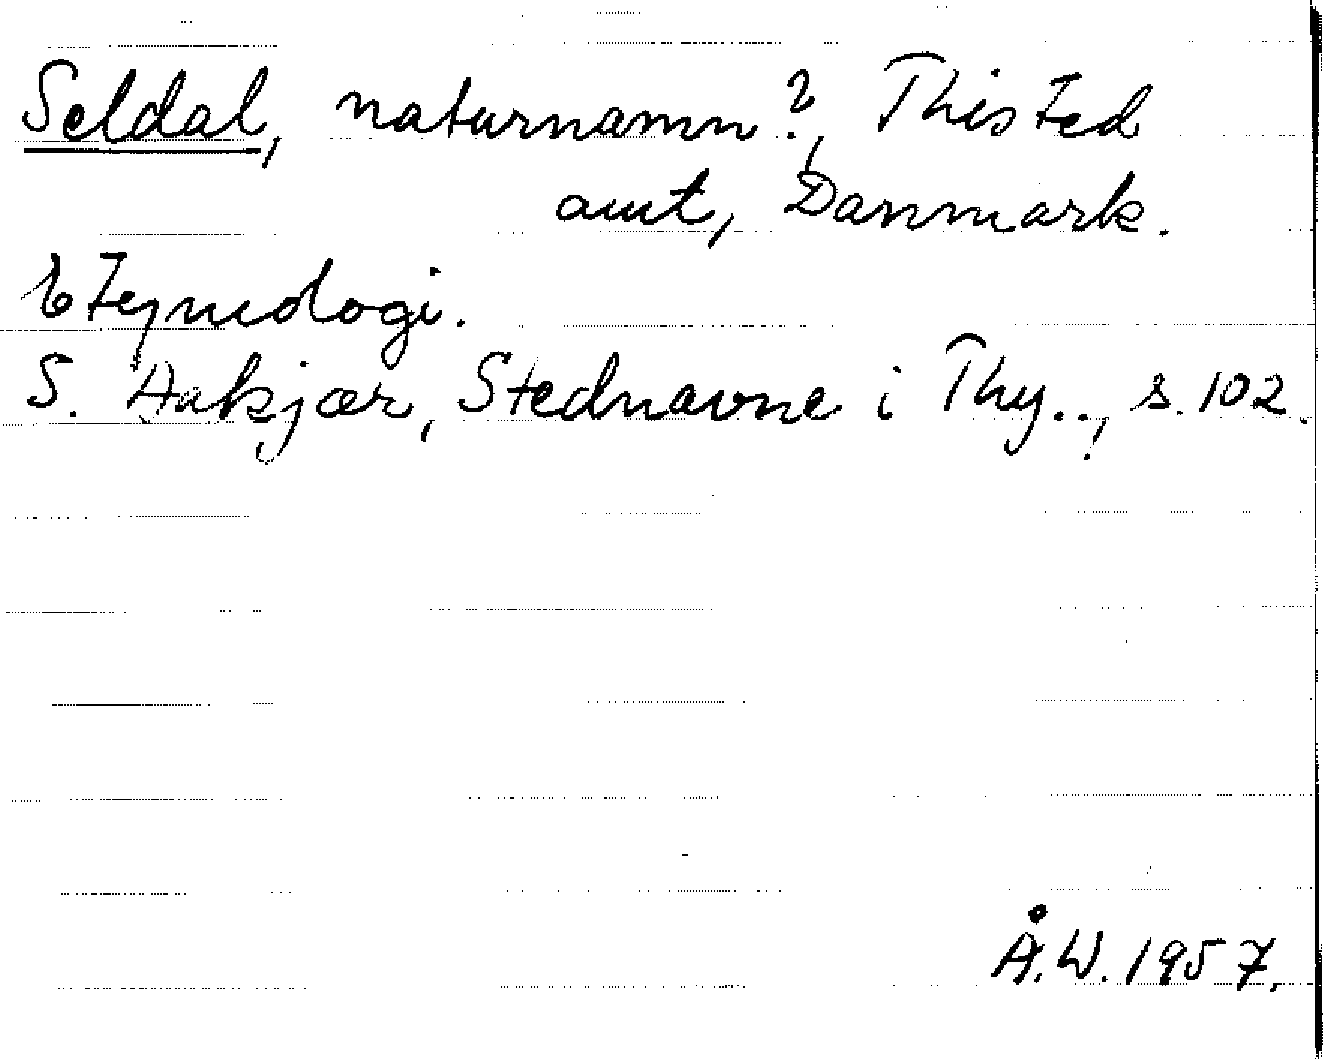 Seldal, naturnamn?, Thisted
amt, Danmark.
Etymologi.
S. Aakjær, Stednavne i Thy.., s. 102.
Å.W. 1957.